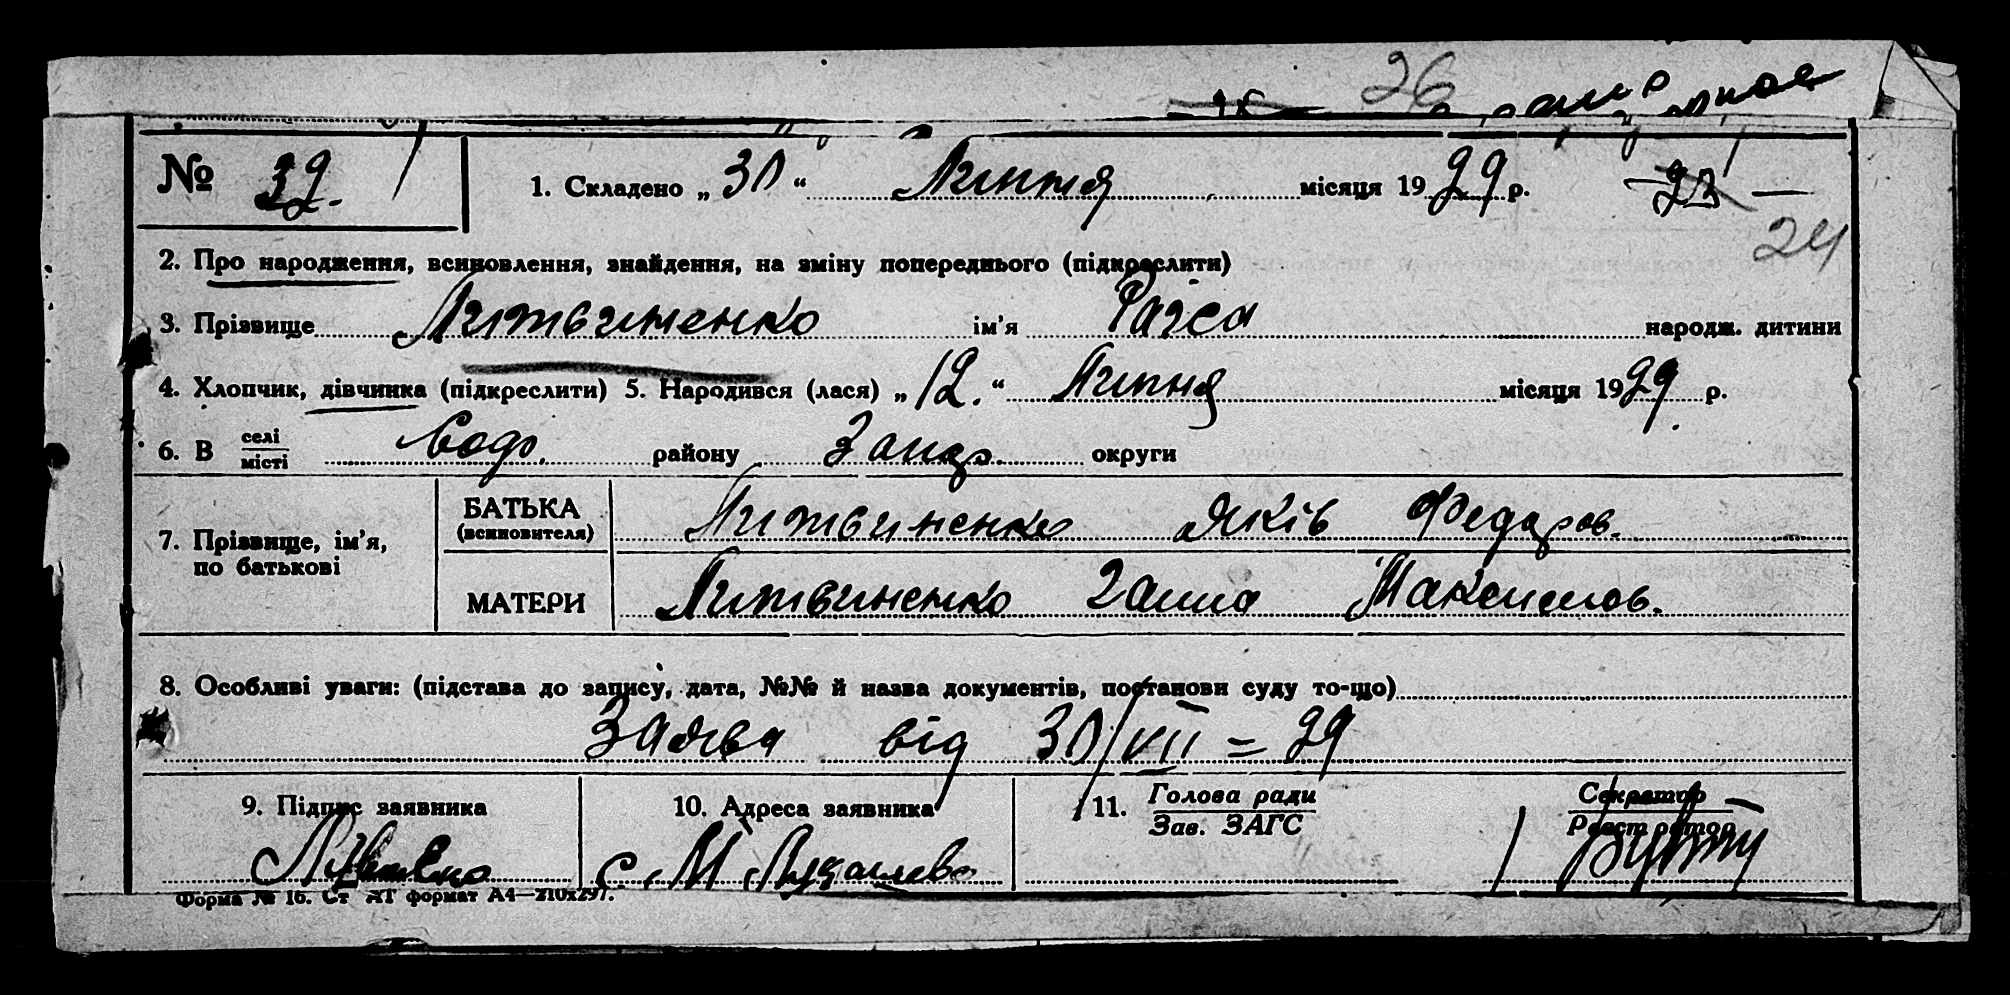 26
№ 39. 1. Складено „30“ Липня місяця 1929 р. 23
24
2. Про народження, всиновлення, знайдення, на зміну попереднього (підкреслити)
3. Прізвище Литвиненко ім’я Раїса народж. дитини
4. Хлопчик, дівчинка (підкреслити) 5. Народився (лася) „12.“ Липня місяця 1929 р.
6. В селі/місті Соф. району Запор. округи
7. Прізвище, ім’я, по батькові
БАТЬКА (всиновителя) Литвиненко Яків Федоров.
МАТЕРИ Литвиненко Ганна Максимов.
8. Особливі уваги: (підстава до запису, дата, №№ й назва документів, постанови суду то-що)
Заява від 30/VII=29
9. Підпис заявника 10. Адреса заявника 11. Голова ради Секретар
Зав. ЗАГС Реєстратор
с. М.
Форма № 16. Ст АТ формат А4—210x297.